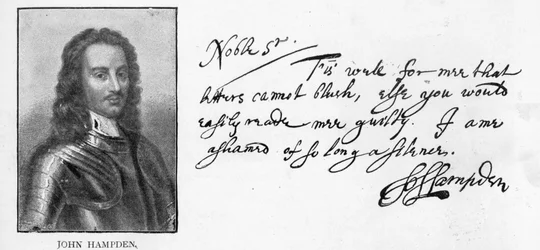 Noble Sr.
T'is well for mee that
letters cannot blush, else you would
easily reade mee guilty. I am
ashamed of so long a silence.
Jo Hampden
JOHN HAMPDEN,